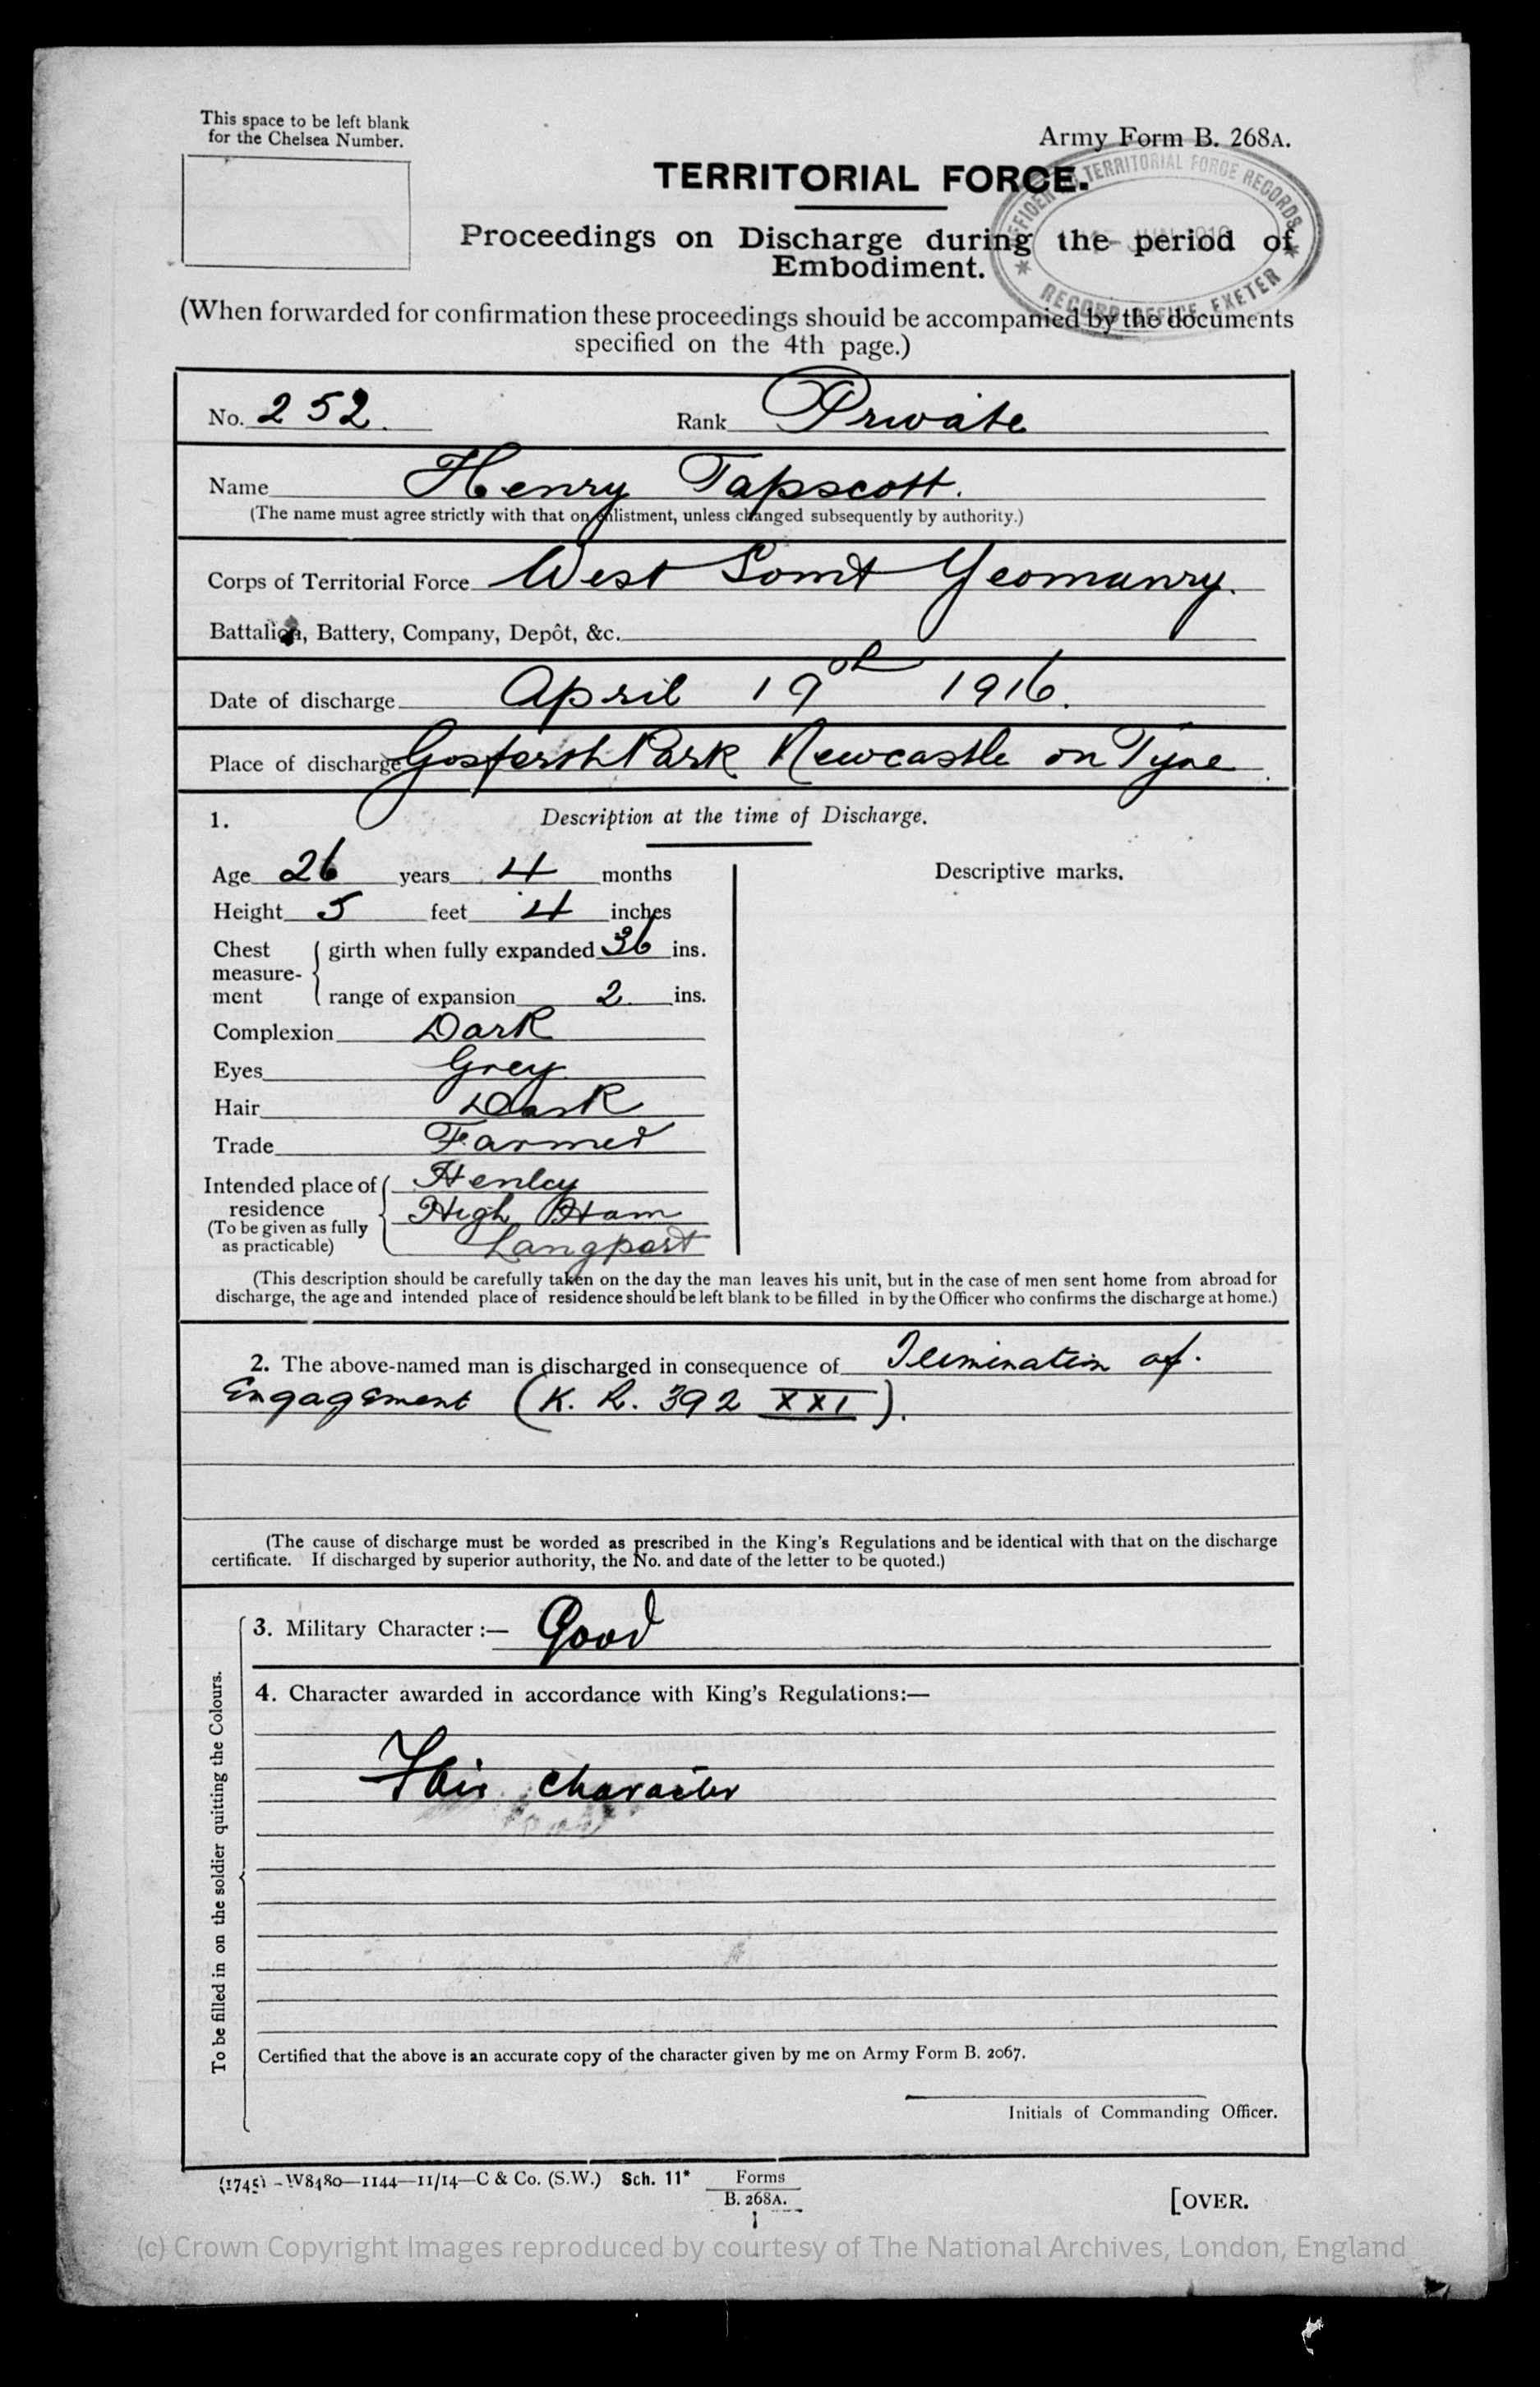 This space to be left blank
for the Chelsea Number.
Army Form B. 268A.
TERRITORIAL FORCE.
OFFICER TERRITORIAL FORCE RECORDS
RECORD OFFICE EXETER
Proceedings on Discharge during the period of
Embodiment.
(When forwarded for confirmation these proceedings should be accompanied by the documents
specified on the 4th page.)
No. 252. Rank Private
Name Henry Tapscott.
(The name must agree strictly with that on enlistment, unless changed subsequently by authority.)
Corps of Territorial Force West Somt Yeomanry.
Battalion, Battery, Company, Depôt, &c.
Date of discharge April 19th 1916.
Place of discharge Gosforth Park Newcastle on Tyne
1. Description at the time of Discharge.
Age 26 years 4 months
Descriptive marks.
Height 5 feet 4 inches
Chest measurement girth when fully expanded 36 ins.
range of expansion 2 ins.
Complexion Dark
Eyes Grey
Hair Dark
Trade Farmer
Intended place of residence Henley
(To be given as fully as practicable) High Ham
Langport
(This description should be carefully taken on the day the man leaves his unit, but in the case of men sent home from abroad for
discharge, the age and intended place of residence should be left blank to be filled in by the Officer who confirms the discharge at home.)
2. The above-named man is discharged in consequence of Termination of.
Engagement (K. R. 392 XXI).
(The cause of discharge must be worded as prescribed in the King's Regulations and be identical with that on the discharge
certificate. If discharged by superior authority, the No. and date of the letter to be quoted.)
To be filled in on the soldier quitting the Colours.
3. Military Character :— Good
4. Character awarded in accordance with King's Regulations:—
character
Certified that the above is an accurate copy of the character given by me on Army Form B. 2067.
Initials of Commanding Officer.
(1745) -W8480—1144—11/14—C & Co. (S.W.) Sch. 11* Forms
B. 268A.
1
[OVER.
(c) Crown Copyright Images reproduced by courtesy of The National Archives, London, England